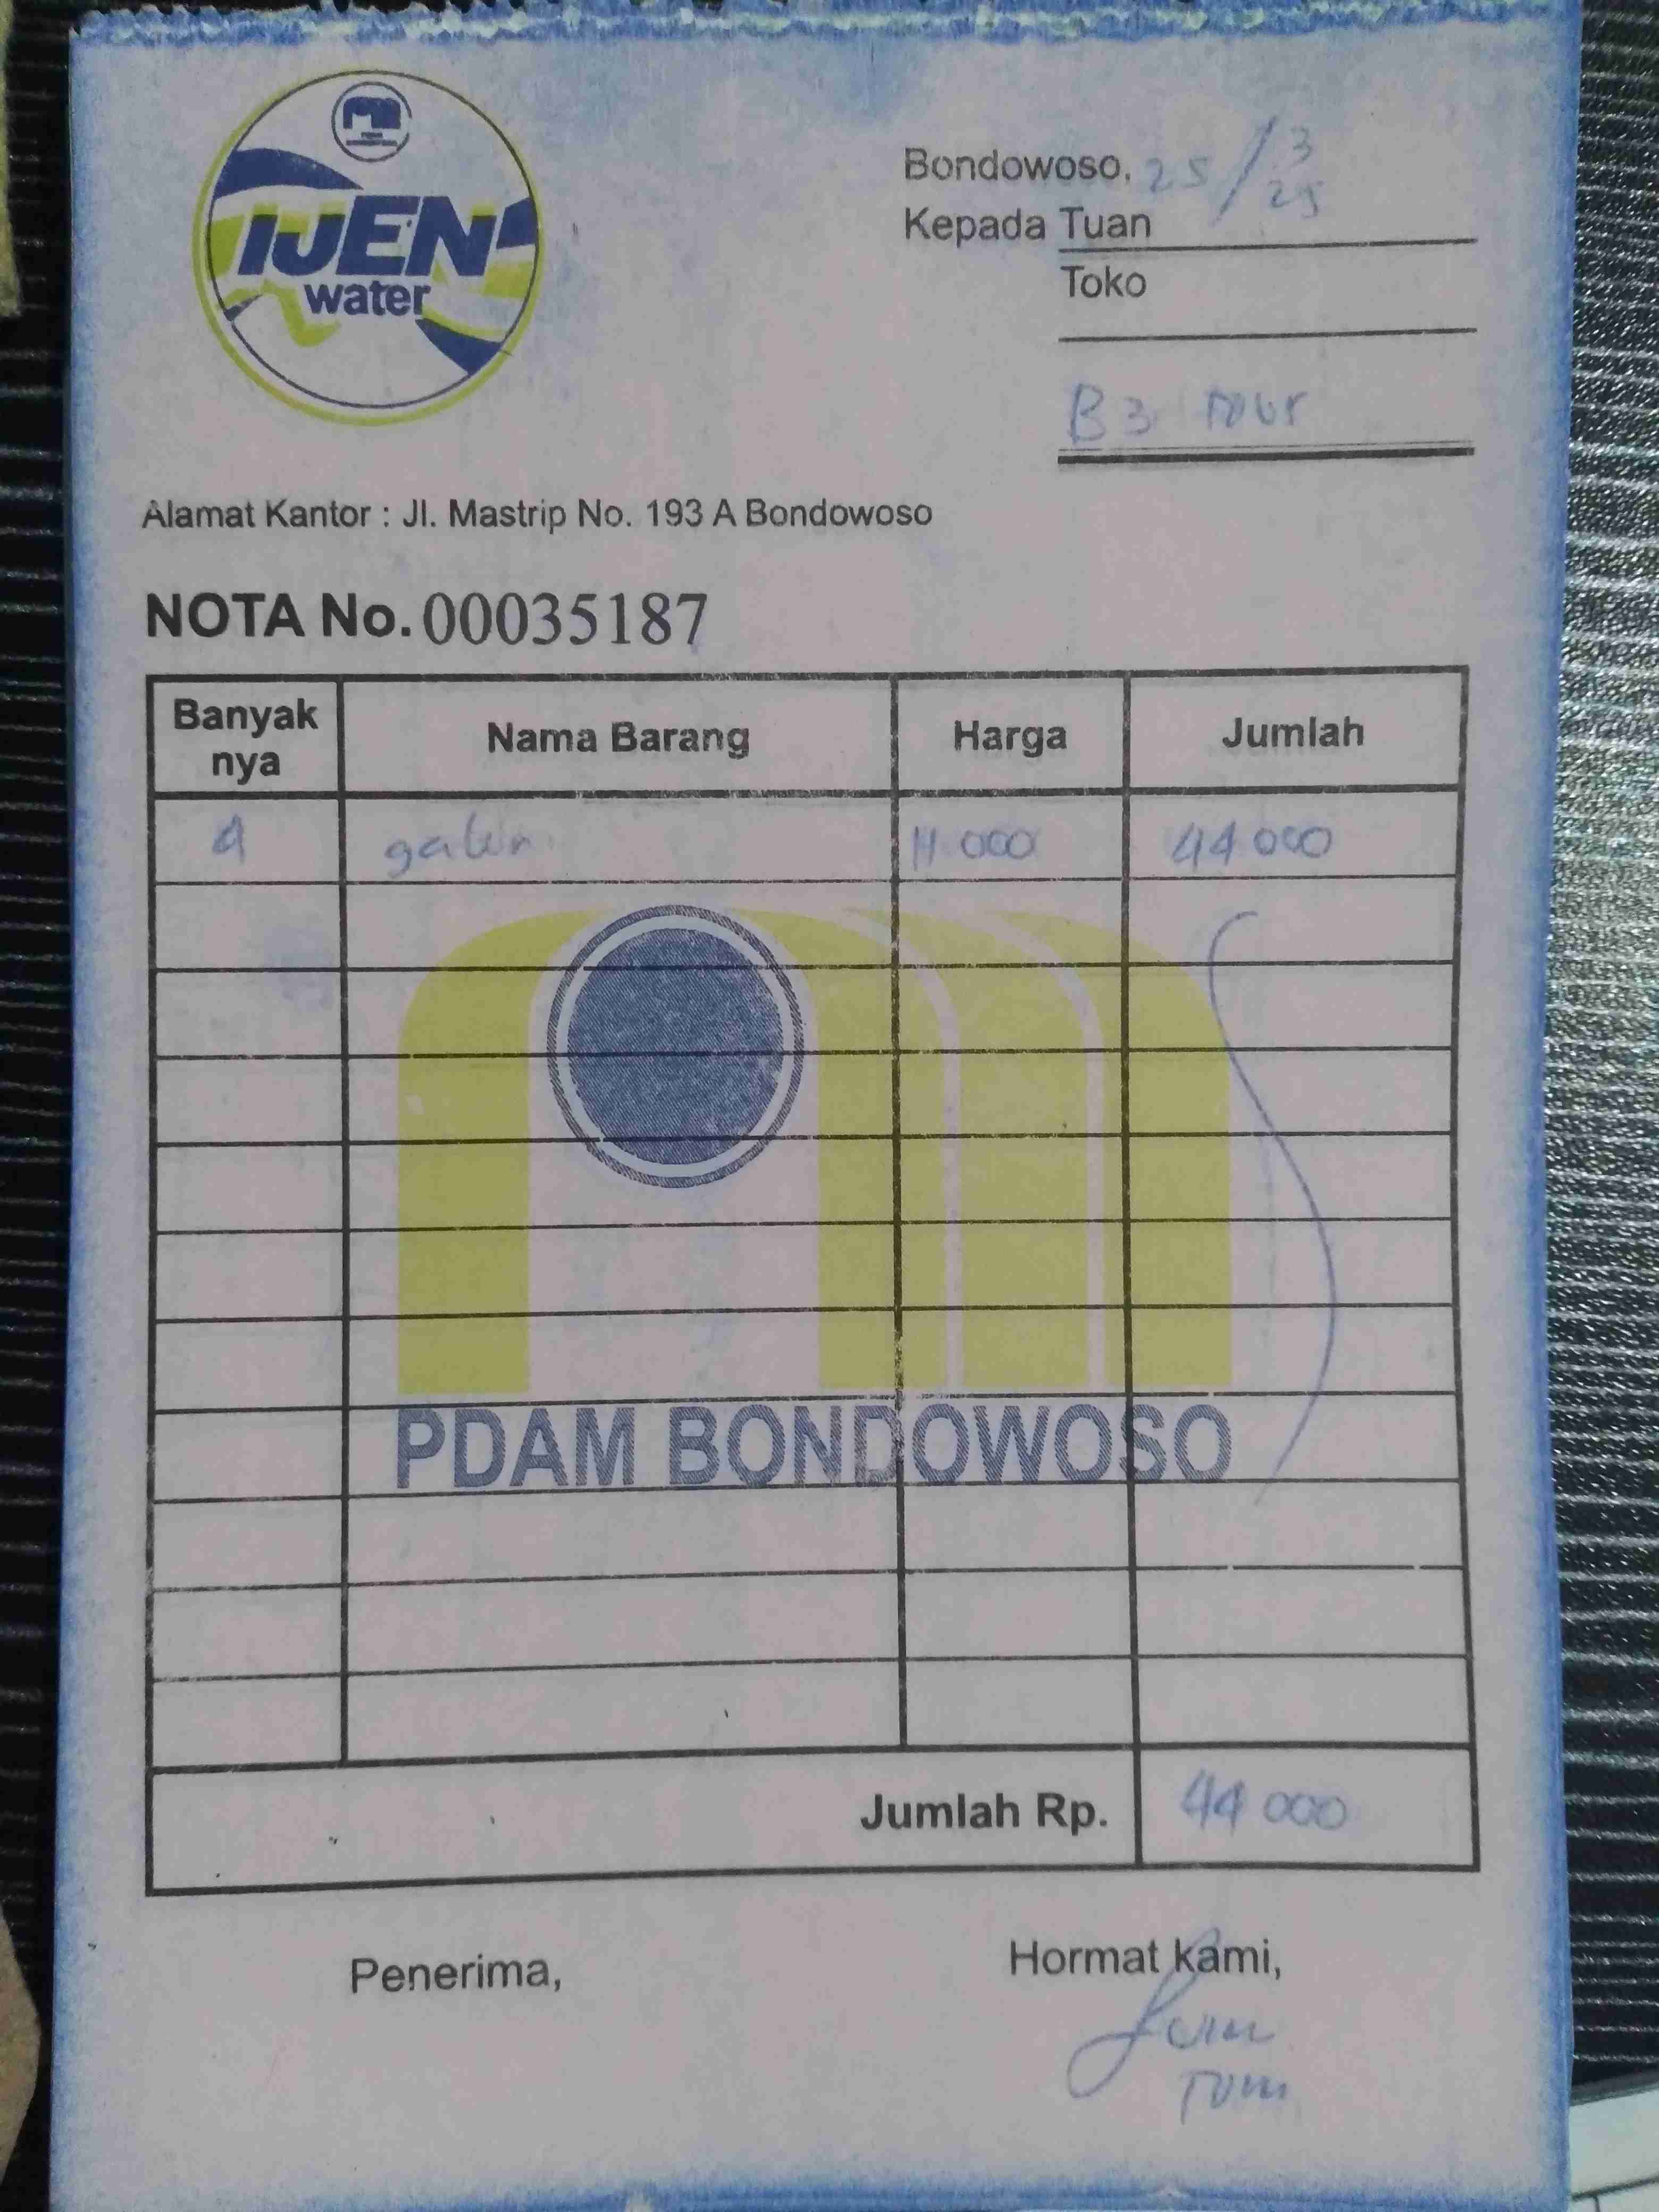 IJEN
water
Bondowoso, 25/3 25
Kepada Tuan
Toko
B3 Tour
Alamat Kantor : Jl. Mastrip No. 193 A Bondowoso
NOTA No. 00035187
Banyak nya Nama Barang Harga Jumlah
4 galon 11 000 44 000
PDAM BONDOWOSO
Jumlah Rp. 44 000
Penerima, Hormat kami,